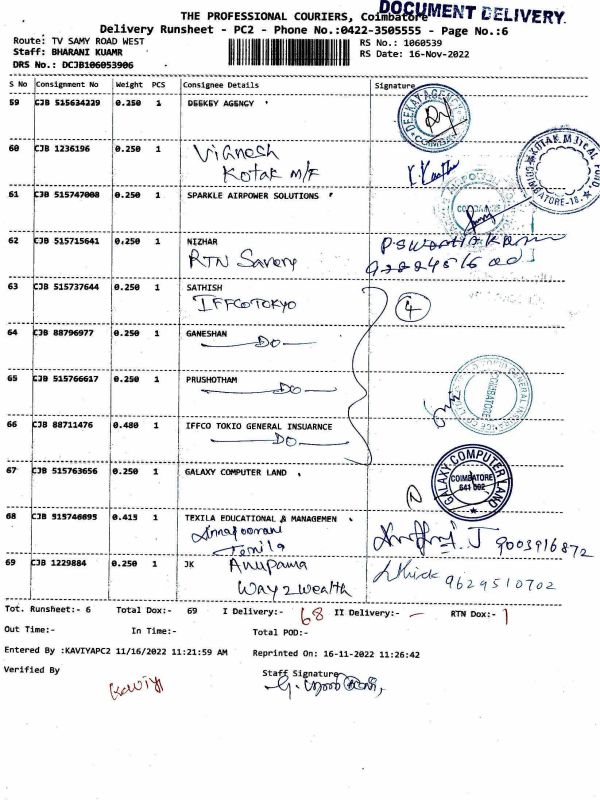 DOCUMENT DELIVERY.
THE PROFESSIONAL COURIERS, Coimbatore
Delivery Runsheet - PC2 - Phone No.:0422-3505555 - Page No.:6
Route: TV SAMY ROAD WEST
RS No.: 1060539
Staff: BHARANI KUAMR
RS Date: 16-Nov-2022
DRS No.: DCJB106053906
S No Consignment No Weight PCS Consignee Details Signature
59 CJB 515634229 0.250 1 DEEKEY AGENCY
DEEKAY AGENCY
COIMBATORE
60 CJB 1236196 0.250 1 Vignesh
Kotak M/F
KOTAK MUTUAL FUND
COIMBATORE-18.
61 CJB 515747008 0.250 1 SPARKLE AIRPOWER SOLUTIONS
62 CJB 515715641 0.250 1 NIZHAR
RTN Savery
63 CJB 515737644 0.250 1 SATHISH
IFFCOTOKYO
4
64 CJB 88796977 0.250 1 GANESHAN
DO
65 CJB 515766617 0.250 1 PRUSHOTHAM
DO
COIMBATORE
66 CJB 88711476 0.480 1 IFFCO TOKIO GENERAL INSUARNCE
DO
67 CJB 515763656 0.250 1 GALAXY COMPUTER LAND
GALAXY COMPUTER LAND
COIMBATORE
641 002
68 CJB 515746895 0.415 1 TEXILA EDUCATIONAL & MANAGEMEN
Annapoorani
Texila
J 9003916872
69 CJB 1229884 0.250 1 JK Anupama
Way2Wealth
9629510702
Tot. Runsheet:- 6 Total Dox:- 69 I Delivery:- 68 II Delivery:- - RTN Dox:- 1
Out Time:- In Time:- Total POD:-
Entered By :KAVIYAPC2 11/16/2022 11:21:59 AM Reprinted On: 16-11-2022 11:26:42
Verified By
Staff Signature
Kaviya